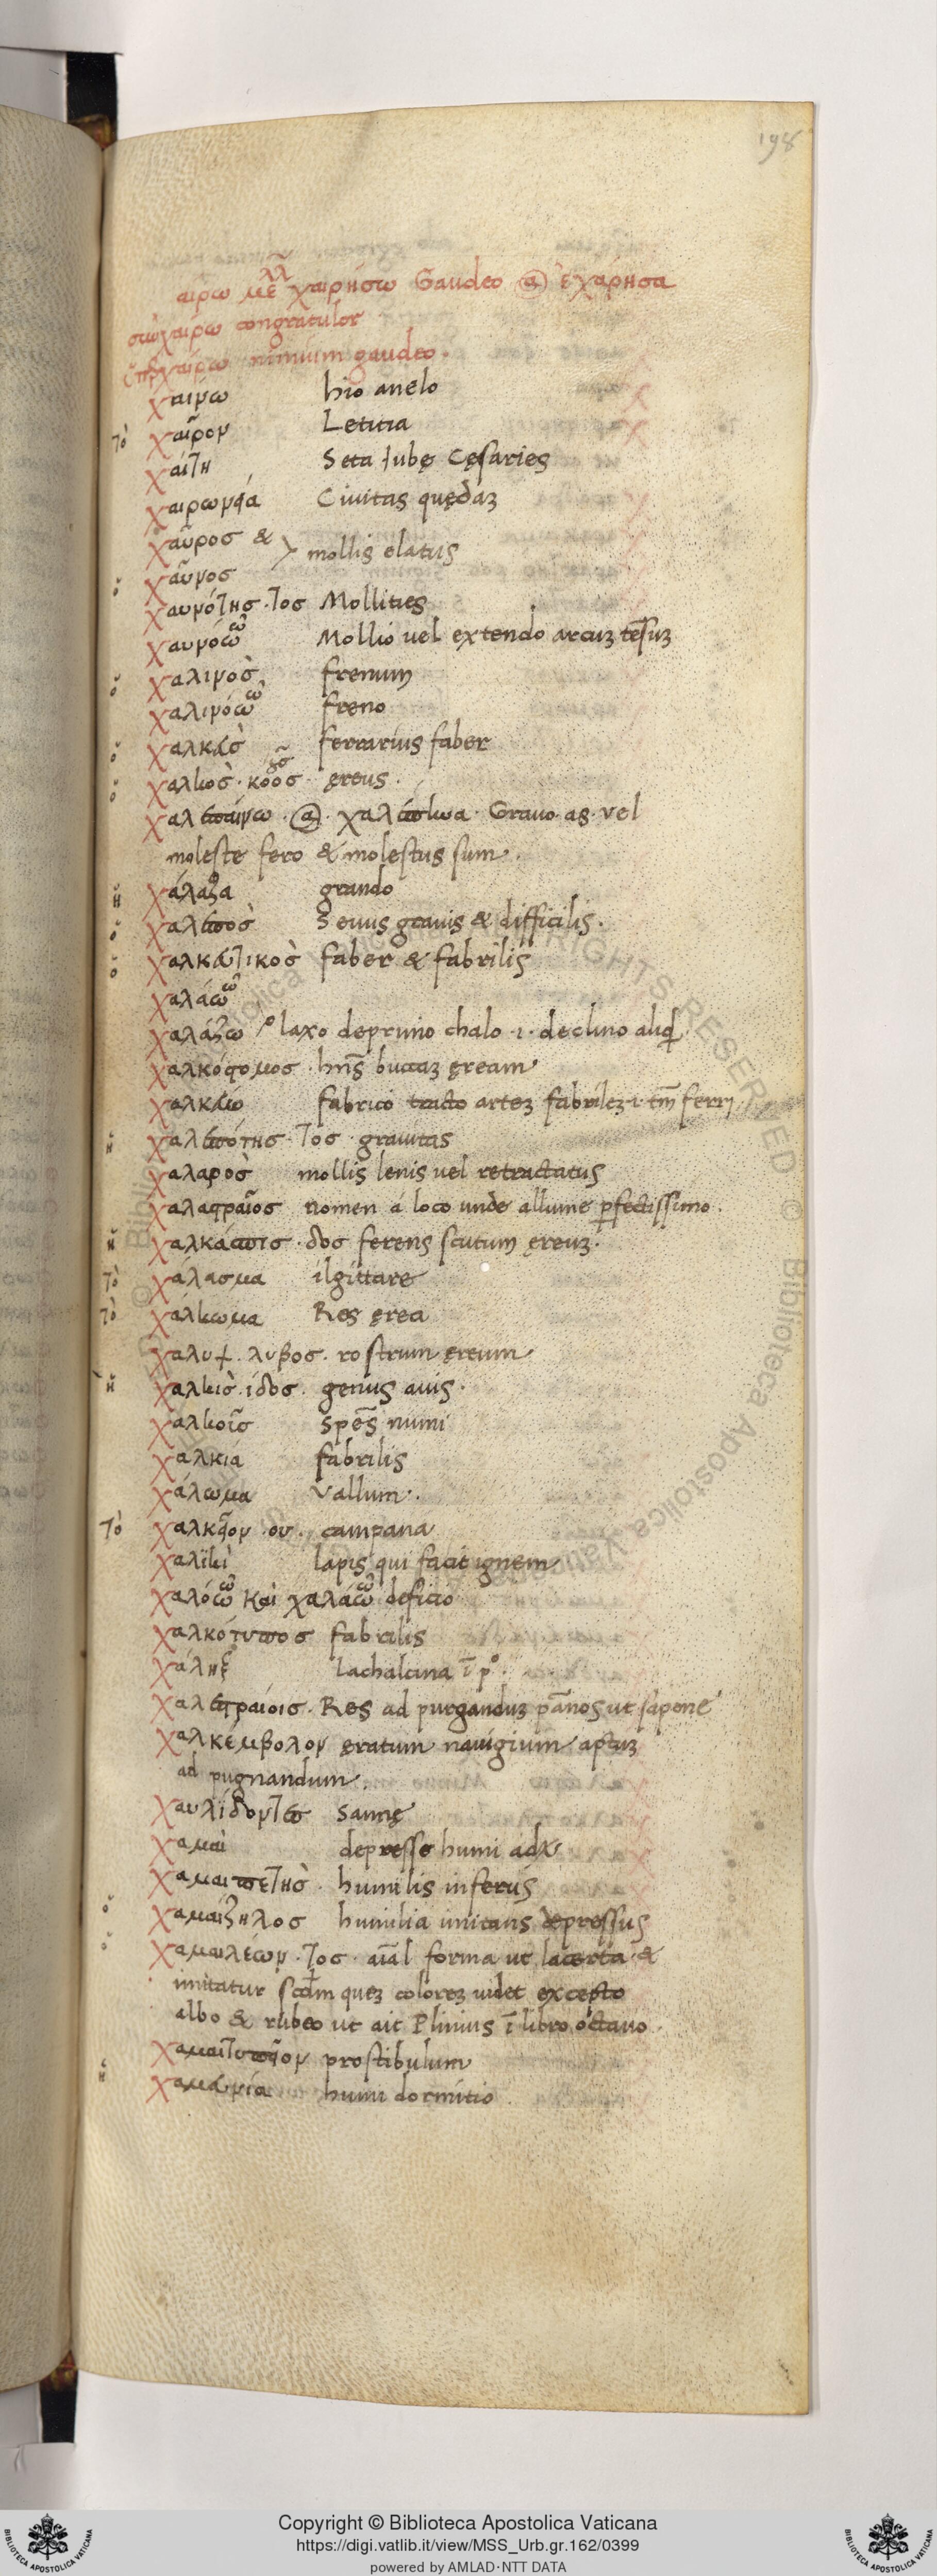 198
αιρω μελλ χαιρήσω Gaudeo ⓐ ἐχάρησα
συγχαίρω congratulor
ὑπερχαίρω nimium gaudeo.
χαιρω hio anelo
τὸ χαῖρον Letitia
χαίτη Seta Iubę Cęsaries
χαιρωνεία Ciuitas quędaȝ
χαῦρος &
χαῦνος mollis elatus
χαυνότης · τος Mollities
χαυνόω ῶ Mollio uel extendo arcuȝ tēsuȝ
ὁ χαλινὸς frenum
χαλινόω ῶ freno
ὁ χαλκεὺς ferrarius faber
ὁ χαλκὸς · ęreus.
χαλεπαίνω · ⓐ · χαλέπηνα · Grauo · as · vel
moleste fero & molestus sum.
ἡ χάλαζα grando
ὁ χαλεπὸς Seuus grauis & difficilis.
ὁ χαλκευτικὸς faber & fabrilis
χαλάω ῶ
χαλάζω laxo deprimo chalo · i · declino aliqd
χαλκόστομος · hn̄s buccaȝ ęream
χαλκεύω fabrico tracto arteȝ fabrileȝ · i · tm̄ ferrj
ἡ χαλεπότης · τος · grauitas
χαλαρὸς mollis lenis vel retractatus
χαλαστραῖος nomen á loco unde allume pfectissimo.
ἡ χαλκάσπις · δος ferens scutum ęreuȝ.
τὸ χάλασμα ilgittare
τὸ χάλκωμα Res ęrea
χαλυψ · λυβος · rostrum ęreum
ἡ χαλκὶς · ίδος · genus auis.
χαλκοῖς spēs numi
χαλκιά fabrilis
χάλωμα vallum.
τὸ χαλκεῖον · ου · campana
χαλικὶ lapis qui facit ignem
χαλόω ῶ καὶ χαλάω ῶ deficio
χαλκότυπος fabrilis
χάληξ lachalcina ī p°.
χαλεστραίοις · Res ad purganduȝ pānos ut sapone
χαλκέμβολον ęratum nauigium aptuȝ
ad pugnandum.
χαυλίδοντες sannę
χαμαὶ depresse humi adx
χαμαιπετὴς · humilis inferus
ὁ χαμαίζηλος humilia imitans depressus
ὁ χαμαιλέων · τος · aīal forma ut lacerta &
imitatur scdm queȝ coloreȝ uidet excepto
albo & rubeo ut ait Plinius ī libro octauo.
χαμαιτυπεῖον prostibulum
ἡ χαμευνία humi dormitio
Copyright © Biblioteca Apostolica Vaticana
https://digi.vatlib.it/view/MSS_Urb.gr.162/0399
powered by AMLAD·NTT DATA